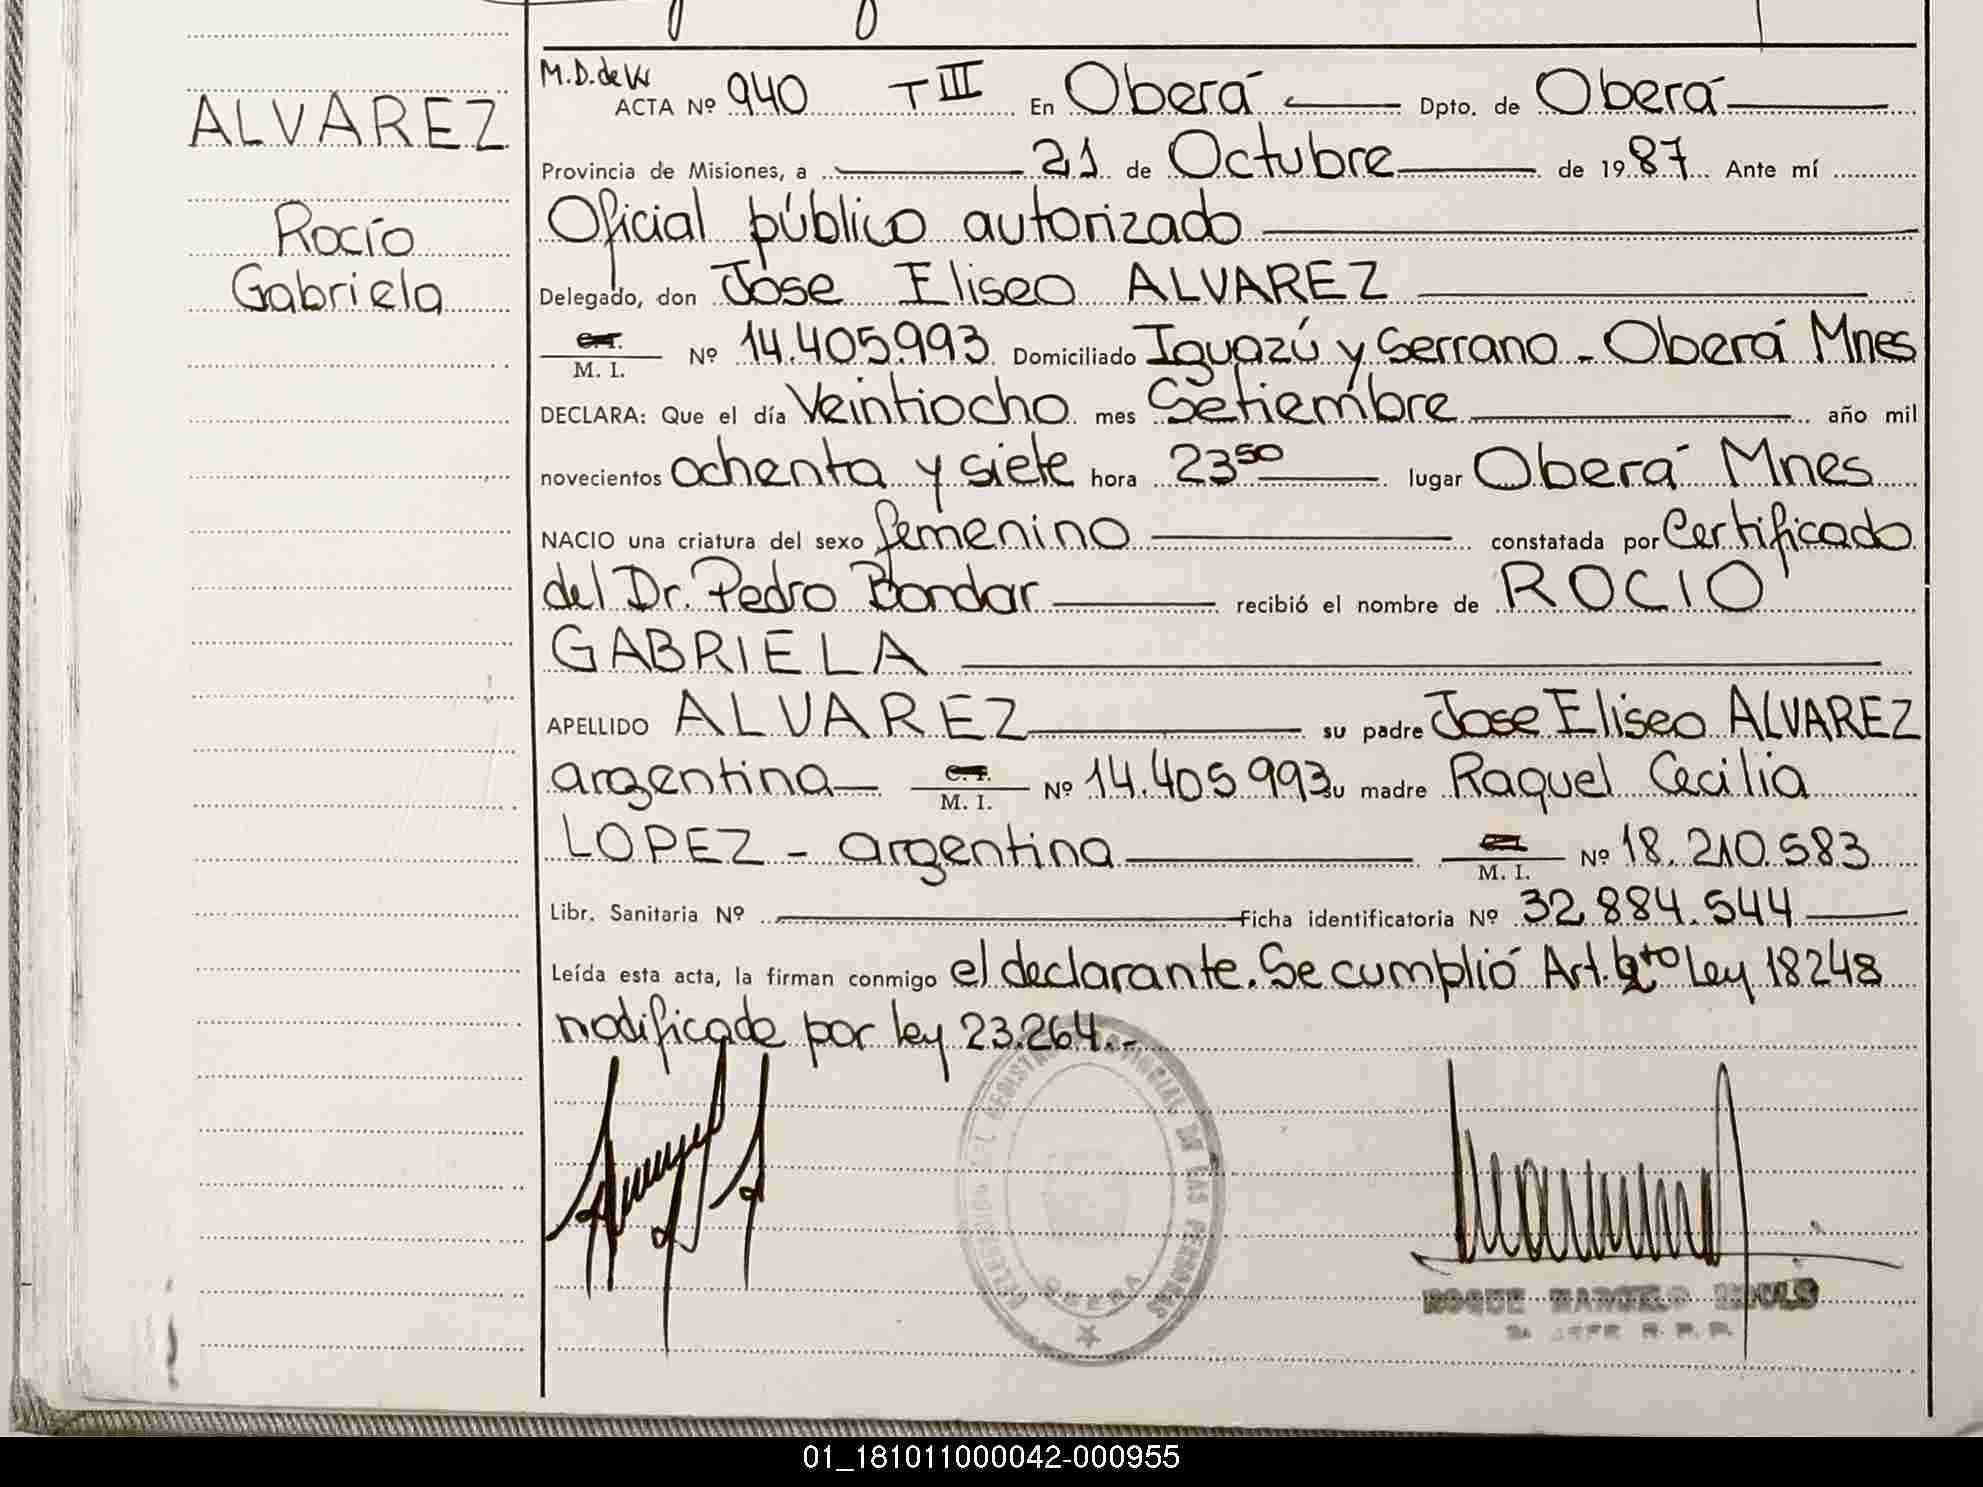 ALVAREZ
Rocío
Gabriela
M.D. de W
ACTA Nº 940 T III En Oberá Dpto. de Oberá
Provincia de Misiones, a 21 de Octubre de 1987 Ante mí
Oficial público autorizado
Delegado, don Jose Eliseo ALVAREZ
C.I.
M. I. Nº 14.405.993 Domiciliado Iguazú y Serrano - Oberá Mnes
DECLARA: Que el día Veintiocho mes Setiembre año mil
novecientos ochenta y siete hora 23 50 lugar Oberá Mnes
NACIO una criatura del sexo femenino constatada por Certificado
del Dr. Pedro Bondar recibió el nombre de ROCIO
GABRIELA
APELLIDO ALVAREZ su padre Jose Eliseo ALVAREZ
argentina C.I. M. I. Nº 14.405.993 su madre Raquel Cecilia
LOPEZ - argentina M. I. Nº 18.210.583
Libr. Sanitaria Nº Ficha identificatoria Nº 32.884.544
Leída esta acta, la firman conmigo el declarante. Se cumplió Art. Ley 18248
modificado por ley 23.264.-
DE LAS PERSONAS
OBERA
ROQUE
01_181011000042-000955